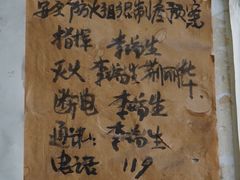 安全防火组织制度预案
指挥 李尚生
灭火 李尚生 荆丽华
断电 李尚生
通讯: 李尚生
电话 119